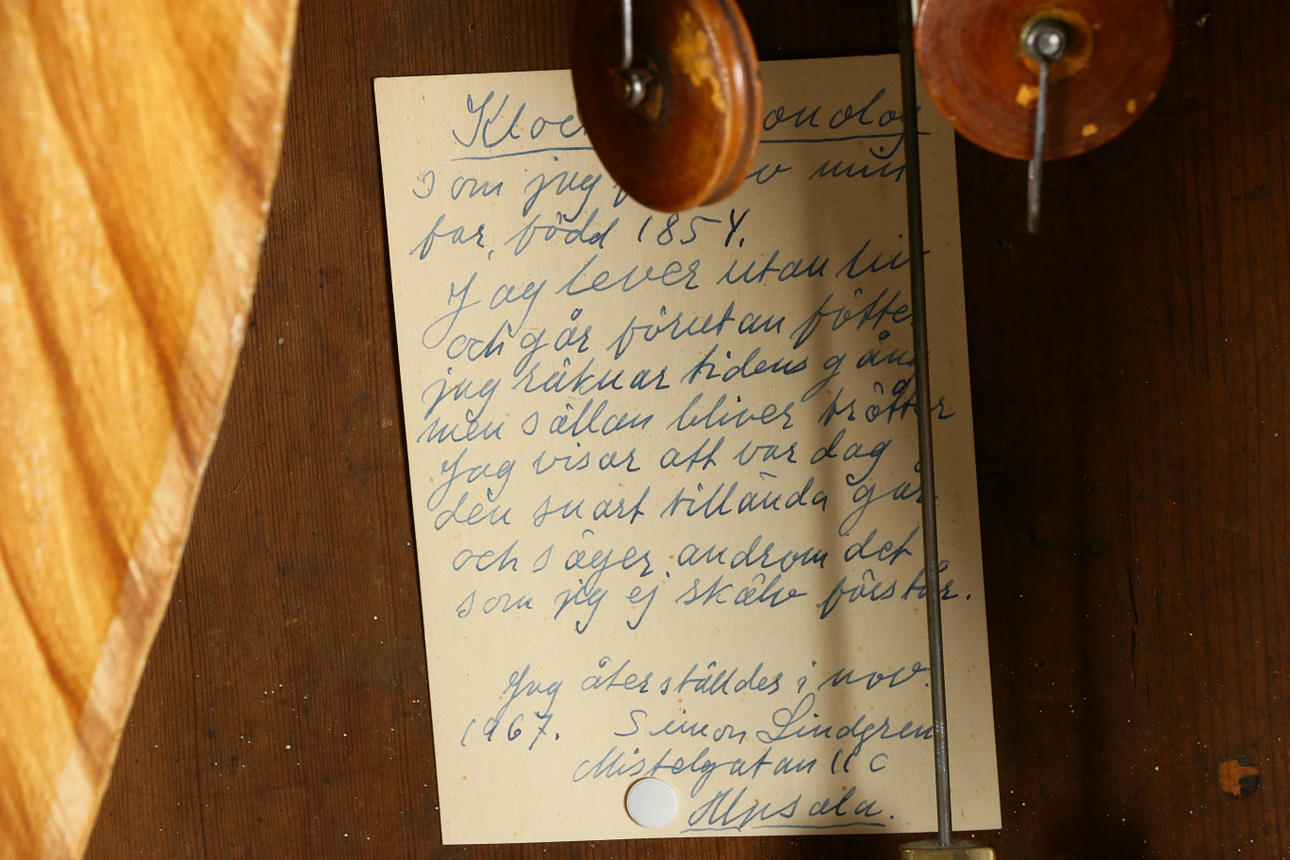 Kloc onolog
som jag f v min
far, född 1854.
Jag lever utan liv
och går förutan fötte
jag räknar tidens gång
men sällan bliver trötter
Jag visar att var dag
den snart tillända går
och säger androm det
som jag ej skälv förstår.
Jag återställdes i nov.
1967. Simon Lindgren
Mistelgatan 11 C
Upsala.